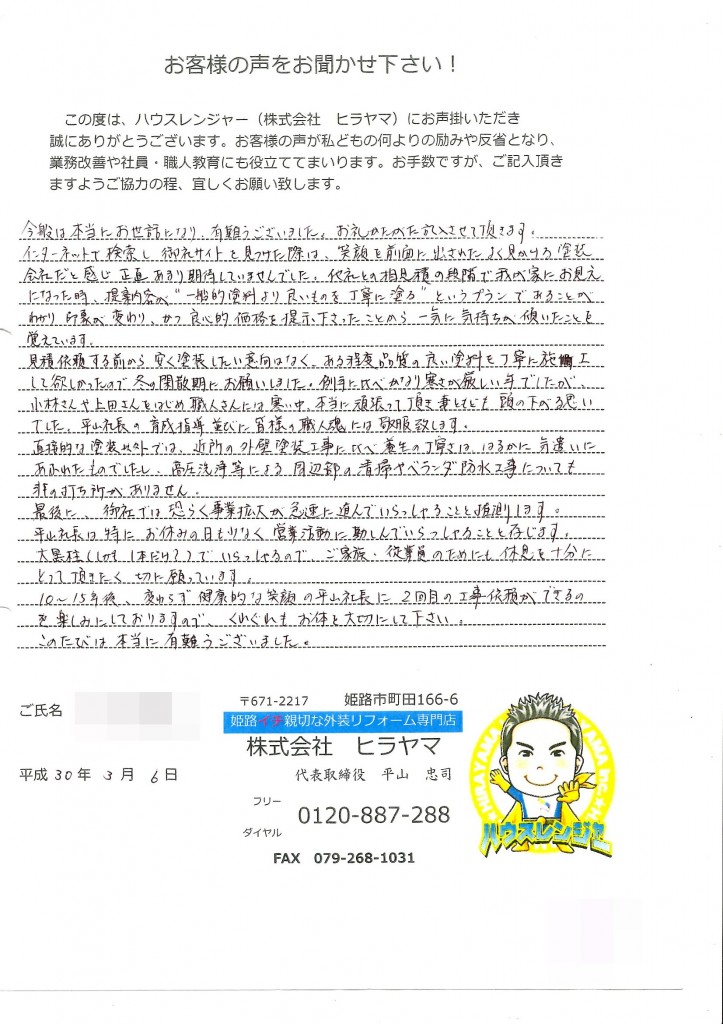 お客様の声をお聞かせ下さい!
この度は、ハウスレンジャー(株式会社 ヒラヤマ)にお声掛いただき
誠にありがとうございます。お客様の声が私どもの何よりの励みや反省となり、
業務改善や社員・職人教育にも役立ててまいります。お手数ですが、ご記入頂き
ますようご協力の程、宜しくお願い致します。
今般は本当にお世話になり、有難うございました。お礼かたがた記入させて頂きます。
インターネットで検索し御社サイトを見つけた際は、笑顔を前面に出されたよく見かける塗装
会社だと感じ正直あまり期待していませんでした。他社との相見積の段階で我が家にお見え
になった時、提案内容が"一般的塗料より良いものを丁寧に塗る"というプランであることが
わかり印象が変わり、かつ良心的価格を提示下さったことから一気に気持ちが傾いたことを
覚えています。
見積依頼する前から安く塗装したい意向はなく、ある程度品質の良い塗料を丁寧に施工
して欲しかったので冬の閑散期にお願いしました。例年に比べかなり寒さが厳しい年でしたが、
小林さんや上田さんをはじめ職人さんには寒い中、本当に頑張って頂き妻ともども頭の下がる思い
でした。平山社長の育成指導並びに皆様の職人魂には敬服致します。
直接的な塗装以外では、近所の外壁塗装工事に比べ養生の丁寧さは、はるかに気遣いに
あふれたものでしたし、高圧洗浄等による周辺部の清掃やベランダ防水工事についても
非の打ち所がありません。
最後に、御社では恐らく事業拡大が急速に進んでいらっしゃることと推測します。
平山社長は特に、お休みの日も少なく営業活動に勤しんでいらっしゃることと存じます。
大黒柱(しかも1本だけ?)でいらっしゃるので、ご家族・従業員のためにも休息を十分に
とって頂きたく切に願っています。
10〜15年後、変わらず健康的な笑顔の平山社長に2回目の工事依頼ができるの
を楽しみにしておりますので、くれぐれもお体を大切にして下さい。
このたびは本当に有難うございました。
ご氏名
平成30年3月6日
〒671-2217 姫路市町田166-6
姫路イチ親切な外装リフォーム専門店
株式会社 ヒラヤマ
代表取締役 平山 忠司
フリー
ダイヤル
0120-887-288
FAX 079-268-1031
HIRAYAMA
ハウスレンジャー